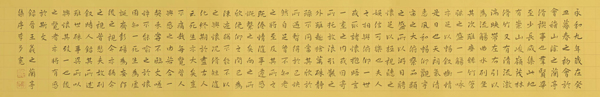 永和九年歲在癸
丑暮春之初會於
會稽山陰之蘭亭
脩禊事也羣賢畢
至少長咸集此地
有崇山峻領茂林
脩竹又有清流激
湍映帶左右引以
為流觴曲水列坐
其次雖無絲竹管
弦之盛一觴一詠
亦足以暢敘幽情
是日也天朗氣清
惠風和暢仰觀宇
宙之大俯察品類
之盛所以遊目騁
懷足以極視聽之
娛信可樂也夫人
之相與俯仰一世
或取諸懷抱悟言
一室之內或因寄
所託放浪形骸之
外雖趣舍萬殊靜
躁不同當其欣於
所遇暫得於己
然自足不知老之
將至及其所之既
情隨事遷感慨
係之矣向之所欣
俛仰之間以為陳
迹猶不能不以之
興懷況脩短隨
化終期於盡古人
云死生亦大矣豈
不痛哉每攬昔人
興感之由若合一
契未嘗不臨文嗟
悼不能喻之於懷
固知一死生為虛
誕齊彭殤為妄作
後之視今亦由今
之視昔悲夫故列
敘時人錄其所述
雖世殊事異所以
興懷其致一也後
之攬者亦將有感
於斯文
錄晉王羲之蘭亭
集序